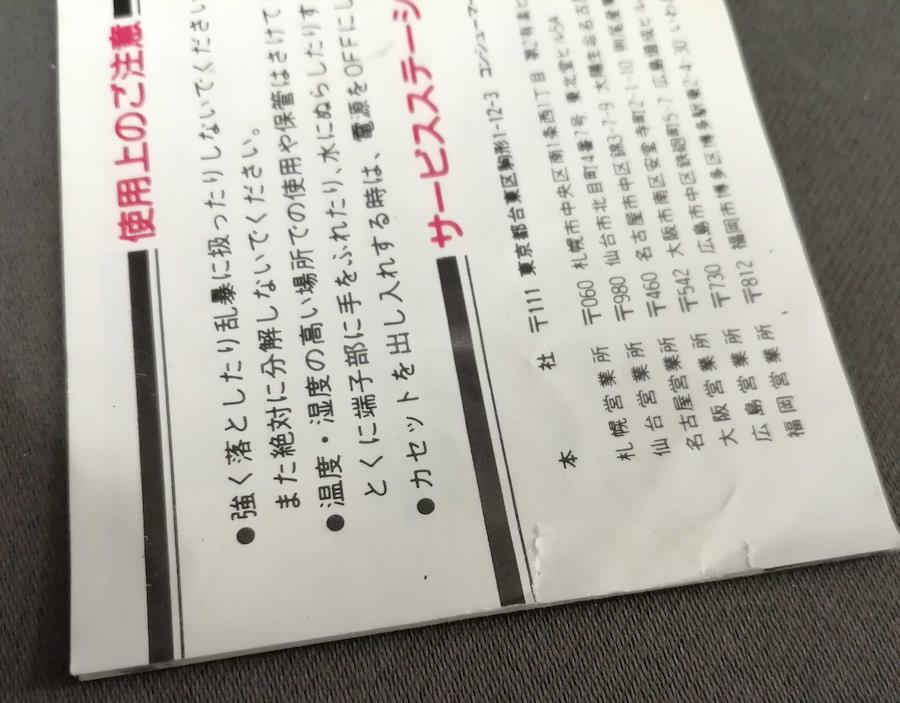 使用上のご注意
●強く落としたり乱暴に扱ったりしないでください
また絶対に分解しないでください。
●温度・湿度の高い場所での使用や保管はさけて
とくに端子部に手をふれたり、水にぬらしたりす
●カセットを出し入れする時は、電源をOFFにし
サービスステーシ
本社 〒111 東京都台東区駒形1-12-3 コンシューマー
札幌営業所 〒060 札幌市中央区南1条西1丁目
仙台営業所 〒980 仙台市北目町4番7号 東北堂ビル5A
名古屋営業所 〒460 名古屋市中区錦3-7-9 太陽生命名古
大阪営業所 〒542 大阪市南区安堂寺町2-1-10
広島営業所 〒730 広島市中区鉄砲町5-7 広島
福岡営業所 〒812 福岡市博多区博多駅東2-4-30 いわ